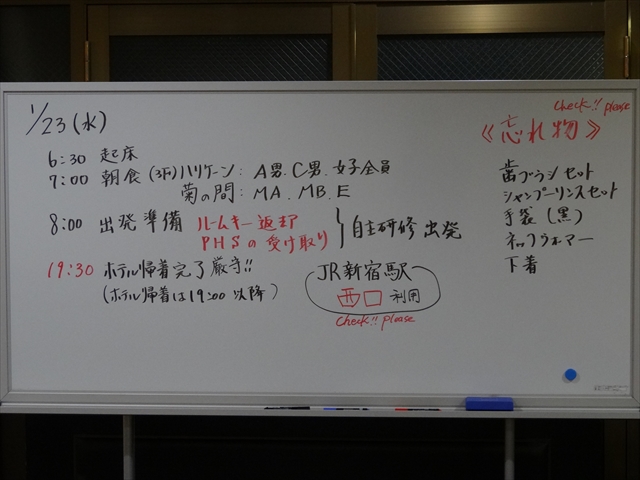 1/23(水)
6:30 起床
7:00 朝食(3F)ハリケーン: A男.C男.女子全員
菊の間: MA.MB.E
8:00 出発準備 ルームキー返却
PHSの受け取り
自主研修出発
19:30 ホテル帰着完了厳守!!
(ホテル帰着は19:00以降)
JR新宿駅
西口 利用
check!! please
check!! please
《忘れ物》
歯ブラシセット
シャンプーリンスセット
手袋(黒)
ネックウォーマー
下着